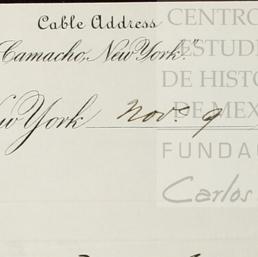 Cable Address
Camacho, New York."
New York Nov. 9
CENTRO
ESTUDI
DE HISTO
DE MEX
FUNDA
Carlos